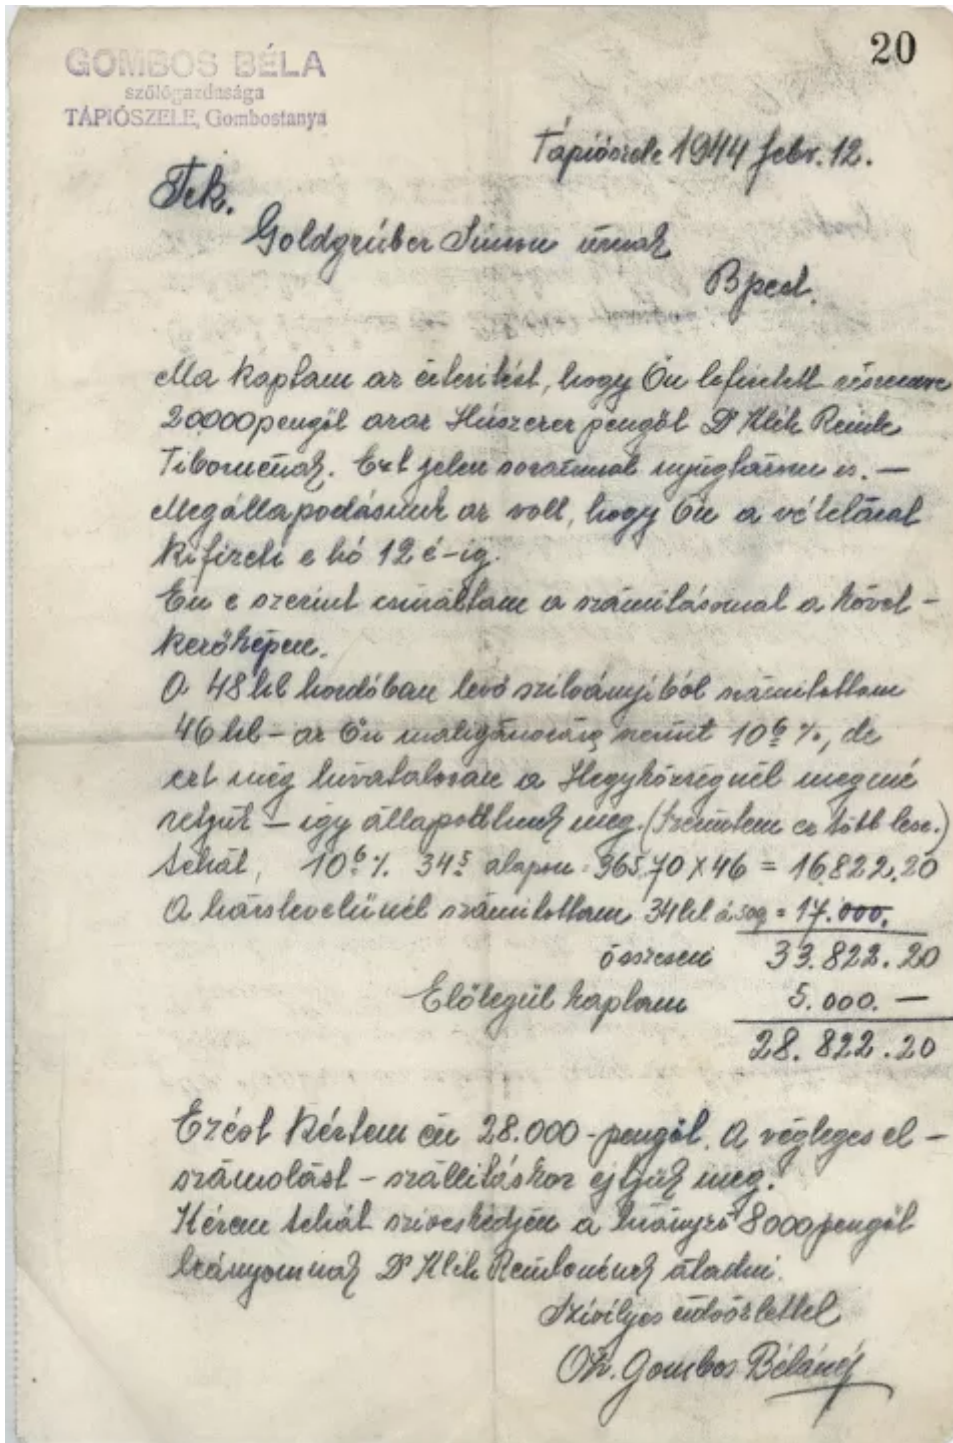 20
GOMBOS BÉLA
szőlőgazdasága
TÁPIÓSZELE, Gombostanya
Tápiószele 1944 febr. 12.
Tek.
Goldgrúber Simon úrnak
Bpest.
Ma kaptam az értesítést, hogy Ön lefizetett részemre
20.000 pengőt azaz Húszezer pengőt Dr Klék
Ezt jelen soraimmal nyugtázom is. —
Megállapodásunk az volt, hogy Ön a vételárat
kifizeti e hó 12 é-ig.
Én e szerint csináltam a számításomat a követ-
kezőképen.
A 48 hl hordóban levő szilványiból számítottam
46 hl – az Ön szerint 10 6 %, de
ezt még hivatalosan a Hegyközségnél megmé
retjük – így állapodtunk meg. (Szerintem ez több lesz.)
tehát, 10 6 % 34 5 alapon 365.70 x 46 = 16.822.20
A hárslevelűnél számítottam 34 hl á 500 = 17.000.
összesen 33.822.20
Előlegül kaptam 5.000. —
28.822.20
Ezért kértem én 28.000 - pengőt. A végleges el-
számolást – szállításkor ejtjük meg.
Kérem tehát sziveskedjen a hiányzó 8000 pengőt
leányomnak Dr Klék átadni.
Szívélyes üdvözlettel
Özv. Gombos Béláné